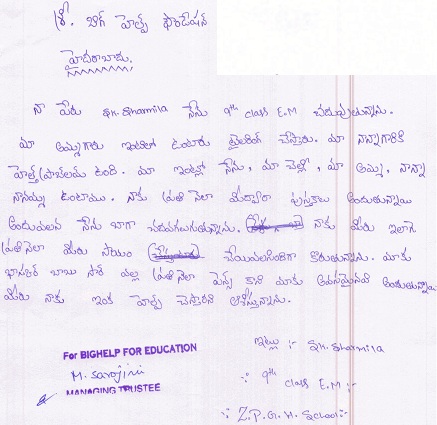 శ్రీ. బిగ్ హెల్ప్ ఫౌండేషన్
హైదరాబాదు.
నా పేరు SK. Sharmila నేను 9th class E.M చదువుతున్నాను.
మా అమ్మగారు ఇంటిలో ఉంటారు టైలరింగ్ చేస్తారు. మా నాన్నగారికి
హెల్త్ ప్రాబ్లమ్ ఉంది. మా ఇంట్లో నేను, మా చెల్లి, మా అమ్మ, నాన్న
నానమ్మ ఉంటాము. నాకు ప్రతి నెలా మీద్వారా పుస్తకాలు అందుతున్నాయి
అందువలన నేను బాగా చదువగలుగుతున్నాను. నాకు మీరు ఇలాగే
ప్రతి నెలా మీరు సాయం చేయవలసిందిగా కోరుతున్నాను. మాకు
బాబు సార్ వల్ల ప్రతి నెలా పెన్స్ కాని మాకు అవసమైనవి అందుతున్నాయి
మీరు నాకు ఇంకా హెల్ప్ చేస్తారని ఆశిస్తున్నాను.
ఇట్లు :- SK. Sharmila
9th class E.M :-
Z.P.G.H. School:-
For BIGHELP FOR EDUCATION
M. Sarojini
MANAGING TRUSTEE